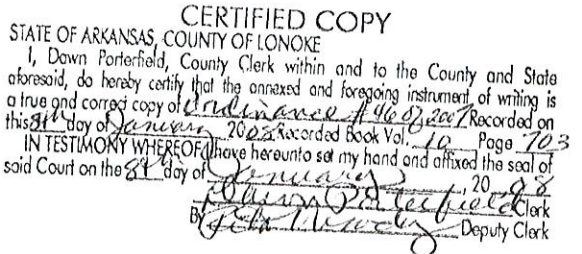 CERTIFIED COPY
STATE OF ARKANSAS, COUNTY OF LONOKE
I, Dawn Porterfield, County Clerk within and to the County and State
aforesaid, do hereby certify that the annexed and foregoing instrument of writing is
a true and correct copy of Ordinance #46 of 2007 Recorded on
this 8th day of January 2008 Recorded Book Vol. 10 Page 703
IN TESTIMONY WHEREOF I have hereunto set my hand and affixed the seal of
said Court on the 8th day of January, 20 08
Dawn Porterfield Clerk
By Deputy Clerk